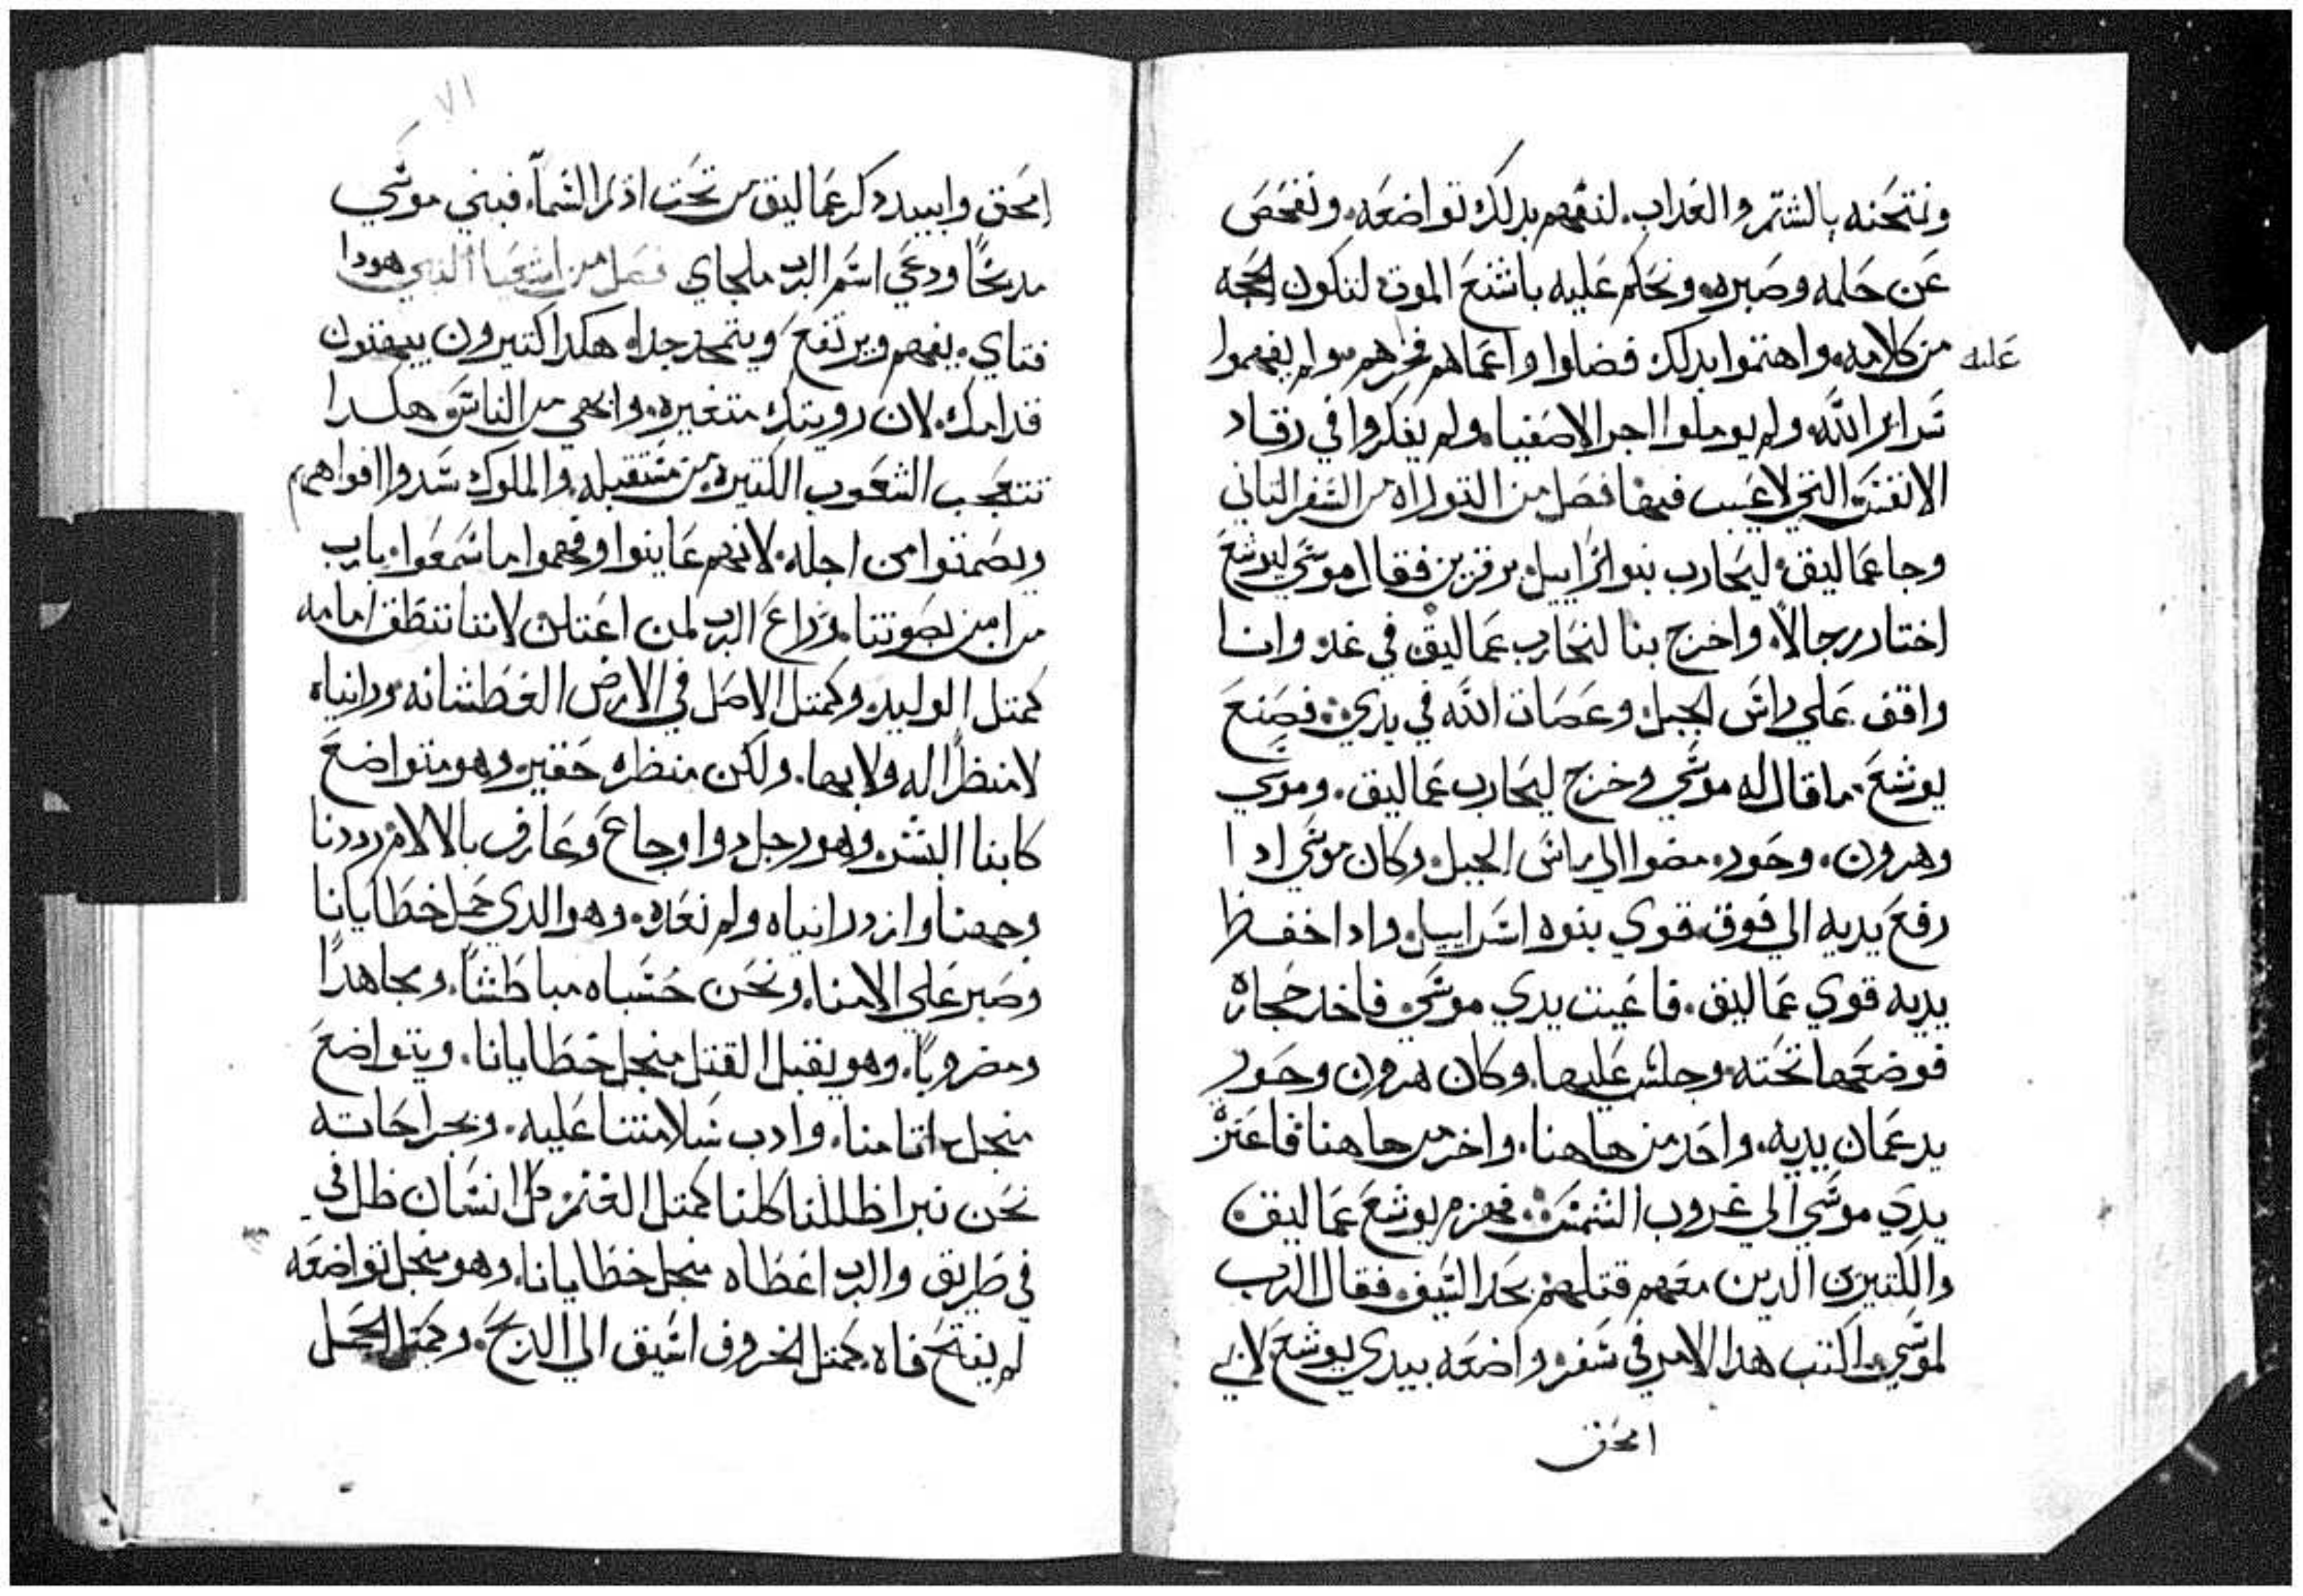 ونمتحنه بالشتم والعداب. لنفهم بدلك تواضعه. ونفحص
عن حلمه وصبره. ونحكم عليه باشنع الموت لتكون الحجه
عليه
من كلامه. واهتموا بدلك فضلوا واعماهم فجرهم ولم يفهموا
سراير الله. ولم يوملوا اجر الاصفيا. ولم يفكروا في رقاد
الانفس التي لا عيب فيها فصل من التوراه من السفر التاني
وجا عماليق. ليحارب بنو اسراييل برفزين فقال موسي ليوشع
اختار رجالاً. واخرج بنا لنحارب عماليق في غد. وانا
واقف علي راس الجبل. وعصاة الله في يدي. فصنع
يوشع. ما قال له موسي وخرج ليحارب عماليق. وموسي
وهرون. وحور. مضوا الي راس الجبل. وكان موسي ادا
رفع يديه الي فوق. قوي بنوه اسراييل. وادا اخفظ
يديه قوي عماليق. فاعيت يدي موسي. فاخد حجاره
فوضعها تحته. وجلس عليها. وكان هرون وحور
يدعمان يديه. واحد من هاهنا. واخر من هاهنا فاعتزت
يدي موسي الي غروب الشمس. فهزم يوشع عماليق
والكتيرين الدين معهم قتلهم بحد السيف. فقال الرب
لموسي. اكتب هدا الامر في سفر. واضعه بيدي يوشع لاني
امحق
٧١
امحق وابيد دكر عماليق من تحت اديم السما. فبني موسي
مدبحًا ودعي اسم الرب ملجاي فصل من اشعيا النبي هودا
فتاي. يفهم ويرتفع ويتمجد جدا. هكدا كتيرون يبهتون
قدامك. لان رويتك متغيره. وابهي من الناس هكدا
تتعجب الشعوب الكتيره من مستقبله. والملوك سدوا افواههم
ويصمتوا من اجله. لانهم عاينوا وفهموا ما سمعوا. يارب
من امن بصوتنا. ودراع الرب لمن اعتلن لاننا ننطق امامه
كمتل الوليد. وكمتل الاصل في الارض العطشانه. ورايناه
لا منظرًا له ولا بها. ولكن منظره حقير. وهو متواضع
كابنا البشر. وهو رجل دوا اوجاع وعارف بالالام رددنا
وجهنا وازدرايناه ولم نعده. وهو الدي حمل خطايانا
وصبر علي الامنا. ونحن حسبناه مباطشًا. ومجاهدًا
ومضروبًا. وهو يقبل القتل منجل خطايانا. ويتواضع
منجل اتامنا. وادب سلامتنا عليه. وبجراحاته
نحن نبرا ظللنا كلنا كمتل الغنم. كل انسان ظل في
في طريق والرب اعطاه منجل خطايانا. وهو منجل تواضعه
لم يفتح فاه. كمتل الخروف اسيق الي الدبح. وكمتل الحمل